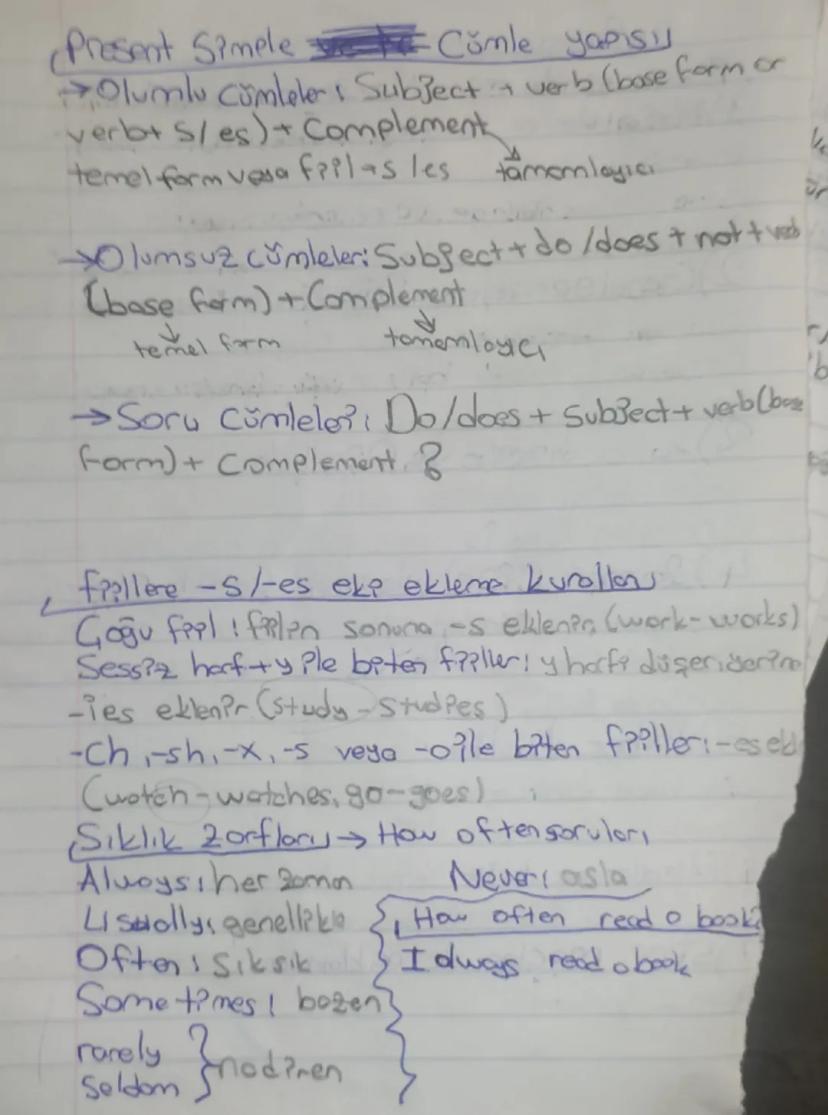 Present Simple Cümle yapısı
→ Olumlu cümleler: Subject + verb (base form or
verb + s/es) + Complement
temel form veya fiil + s/es tamamlayıcı
→ Olumsuz cümleler: Subject + do/does + not + verb
(base form) + Complement
temel form tamamlayıcı
→ Soru Cümleleri: Do/does + Subject + verb (base
form) + Complement ?
fiillere -s/-es eki ekleme kuralları
Çoğu fiil: fiilin sonuna -s eklenir (work - works)
Sessiz harf + y ile biten fiiller: y harfi düşer yerine
-ies eklenir (study - studies)
-ch, -sh, -x, -s veya -o ile biten fiiller: -es ek
(watch - watches, go - goes)
Sıklık Zarfları → How often soruları
Always: her zaman Never: asla
Usually: genellikle How often read a book?
Often: sık sık I always read a book
Sometimes: bazen
rarely
nadiren
seldom